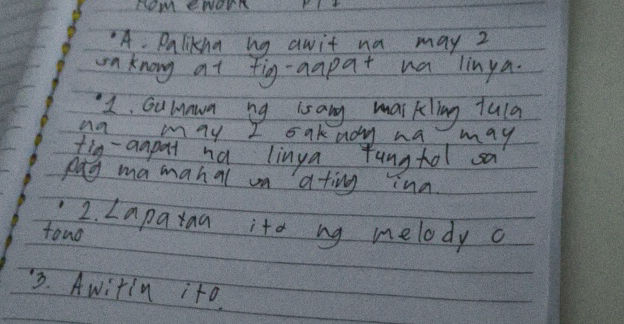 Homework
•A. Palikha ng awit na may 2
saknong at tig-aapat na linya.
•1. Gumawa ng isang maikling tula
na may 2 saknong na may
tig-aapat na linya tungkol sa
pag mamahal sa ating ina.
•2. Lapatan ito ng melody o
tono
•3. Awitin ito.